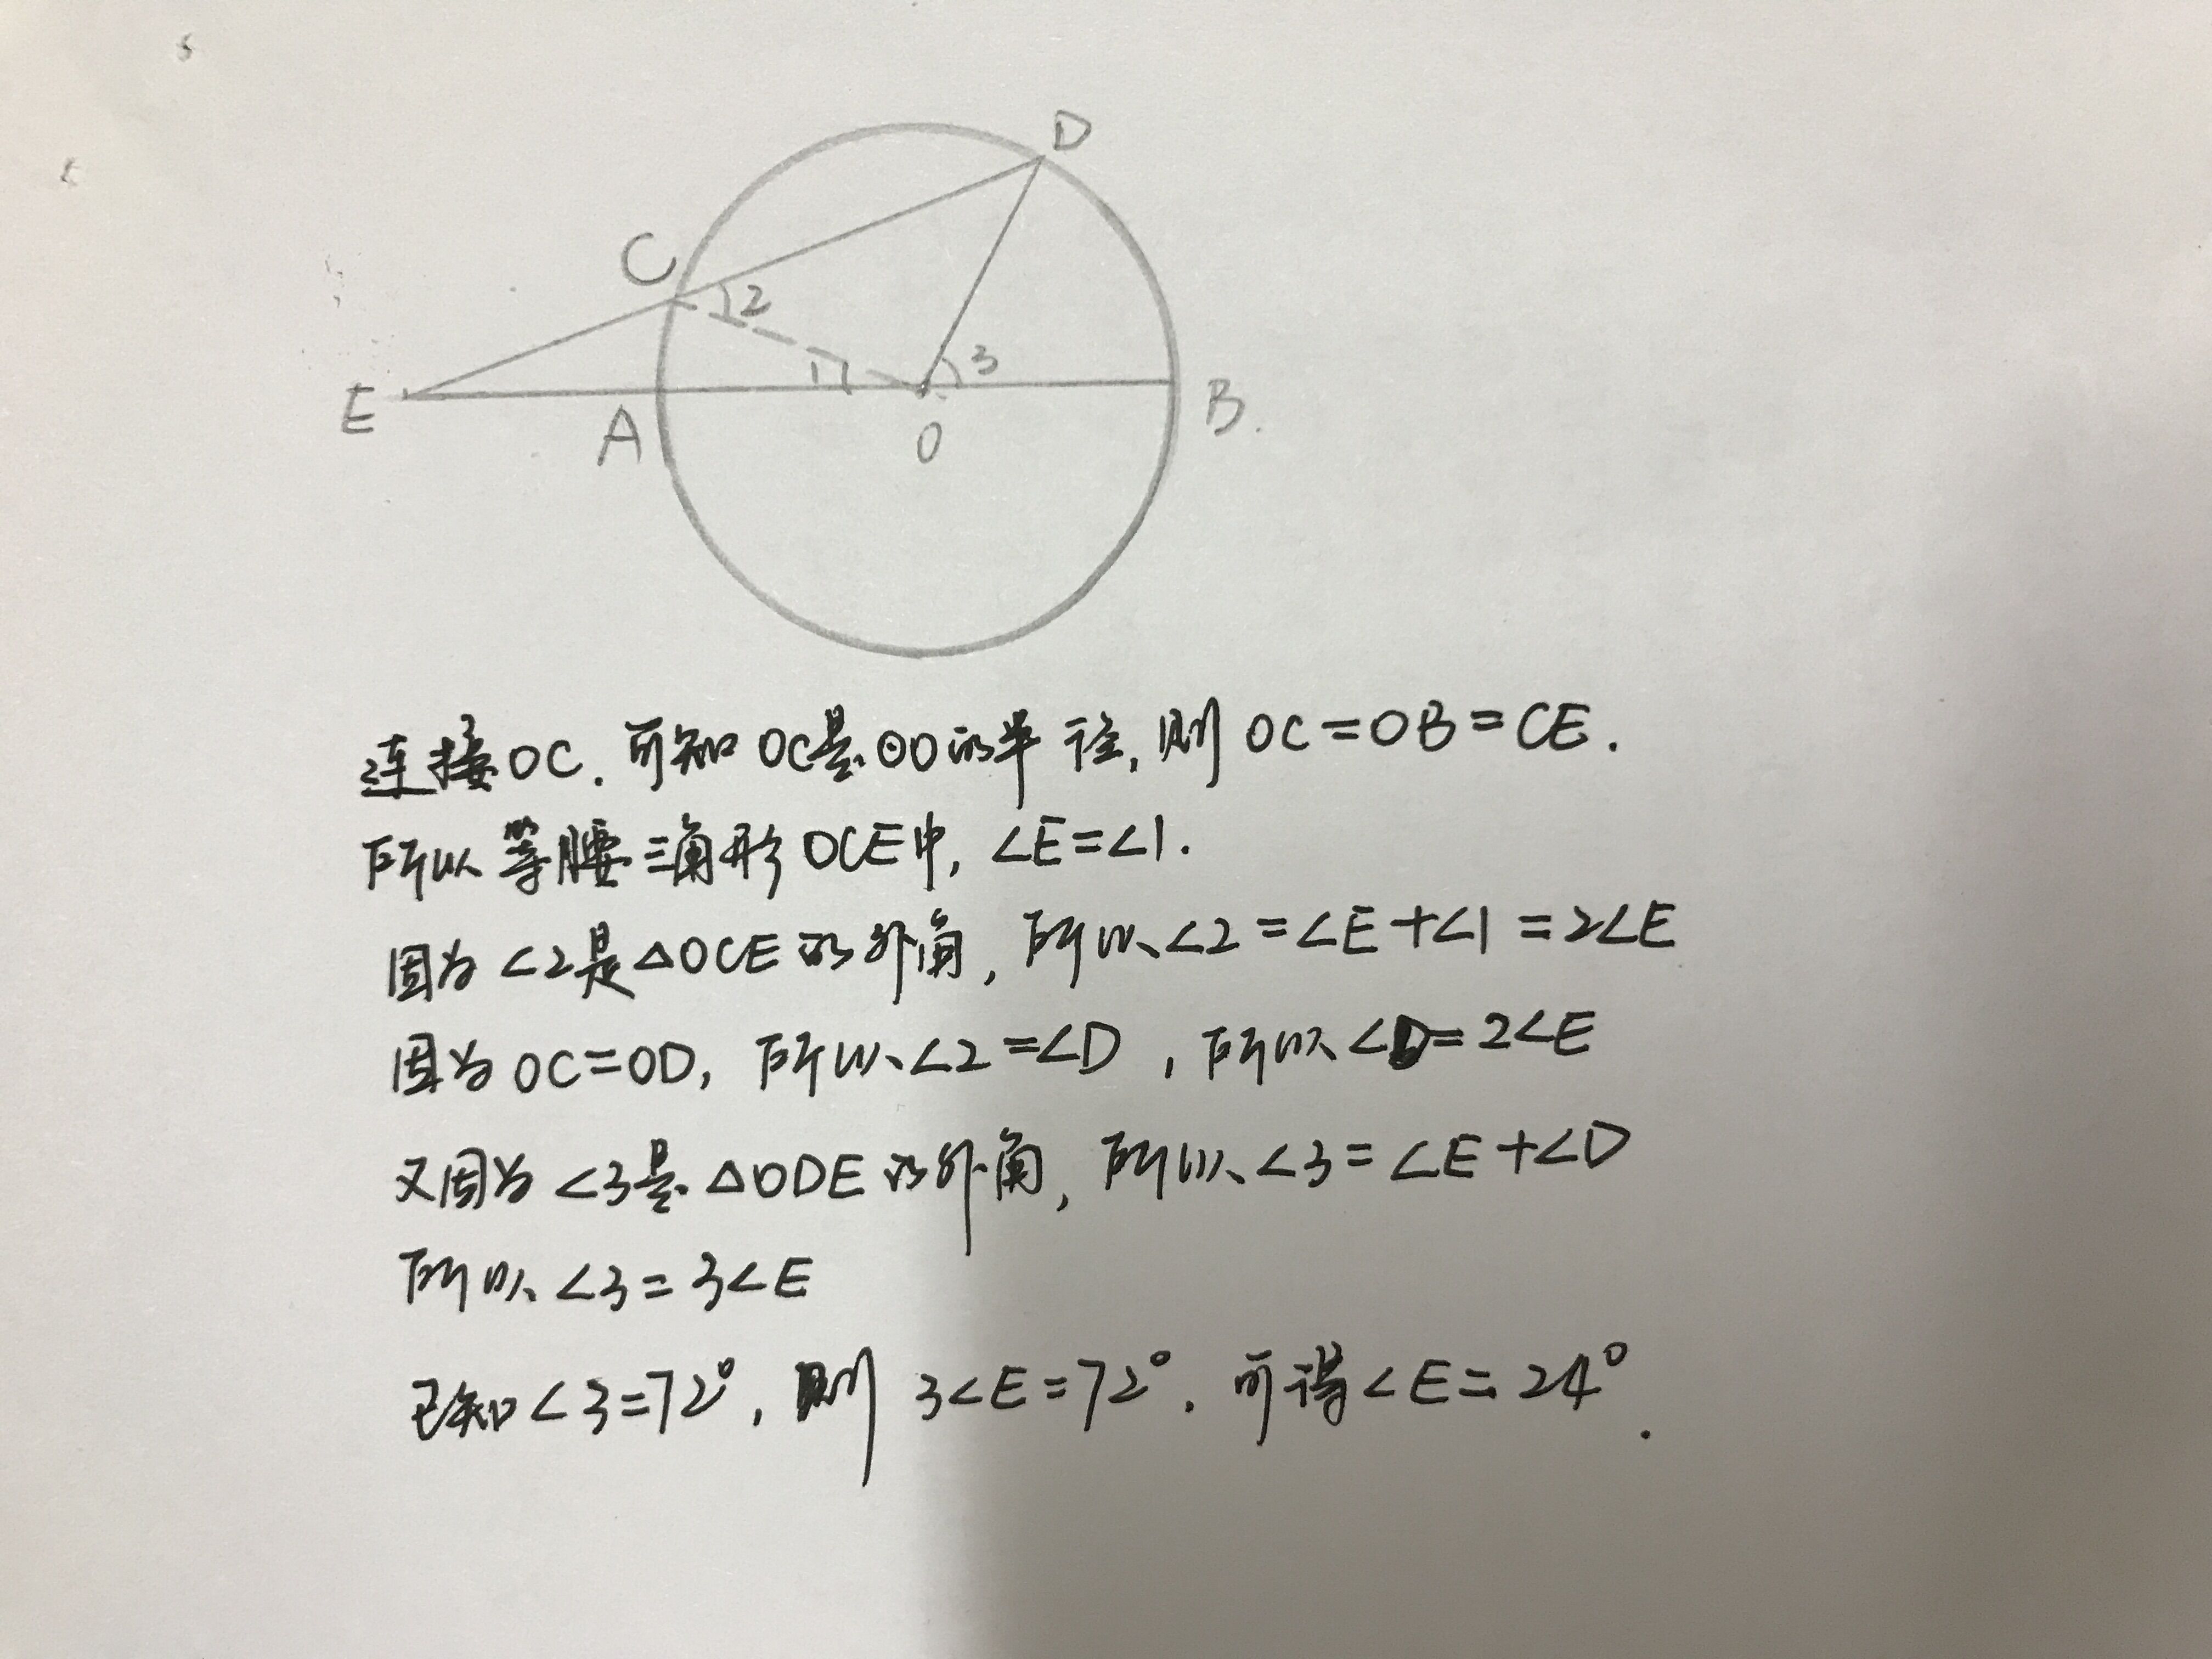 D
C
2
1
3
E
A
O
B.
连接OC.可知OC是⊙O的半径,则OC=OB=CE.
所以等腰三角形OCE中,∠E=∠1.
因为∠2是△OCE的外角,所以∠2=∠E+∠1=2∠E
因为OC=OD,所以∠2=∠D,所以∠D=2∠E
又因为∠3是△ODE的外角,所以∠3=∠E+∠D
所以∠3=3∠E
已知∠3=72°,则3∠E=72°.可得∠E=24°.